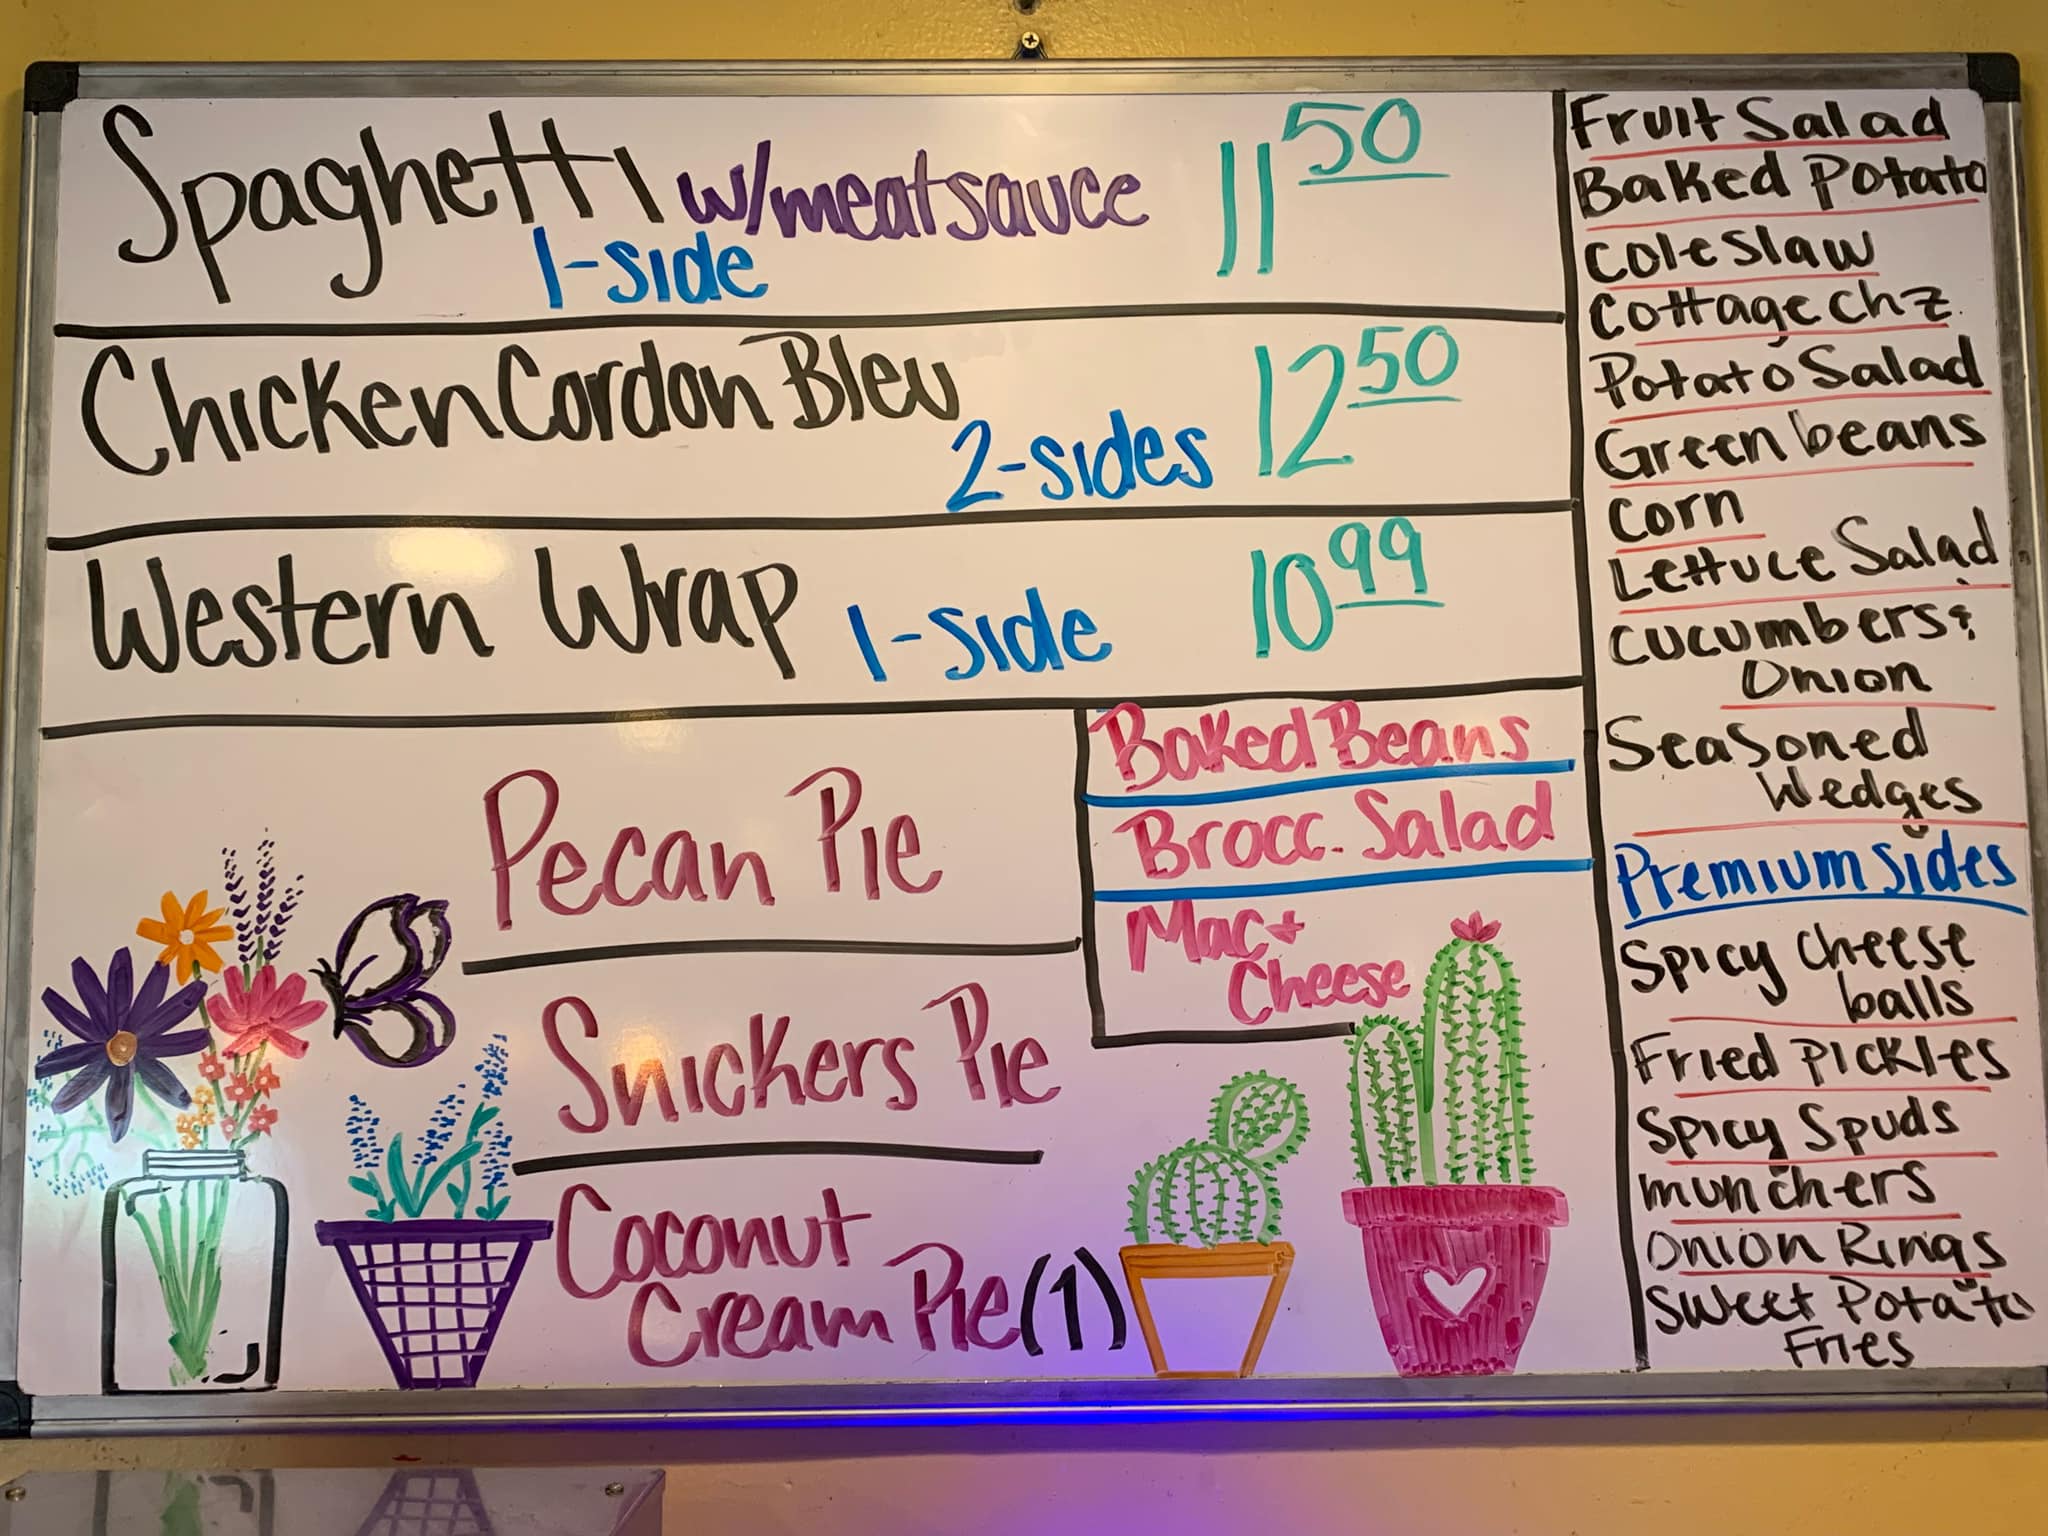 Spaghetti w/meatsauce 11 50
1-side
Chicken Cordon Bleu 12 50
2-sides
Western Wrap 1-side 10 99
Pecan Pie
Snickers Pie
Coconut
Cream Pie (1)
Baked Beans
Brocc. Salad
Mac +
Cheese
Fruit Salad
Baked Potato
Coleslaw
Cottage chz.
Potato Salad
Green beans
Corn
Lettuce Salad
Cucumbers &
Onion
Seasoned
Wedges
Premium sides
Spicy Cheese
balls
Fried Pickles
Spicy Spuds
munchers
Onion Rings
Sweet Potato
Fries